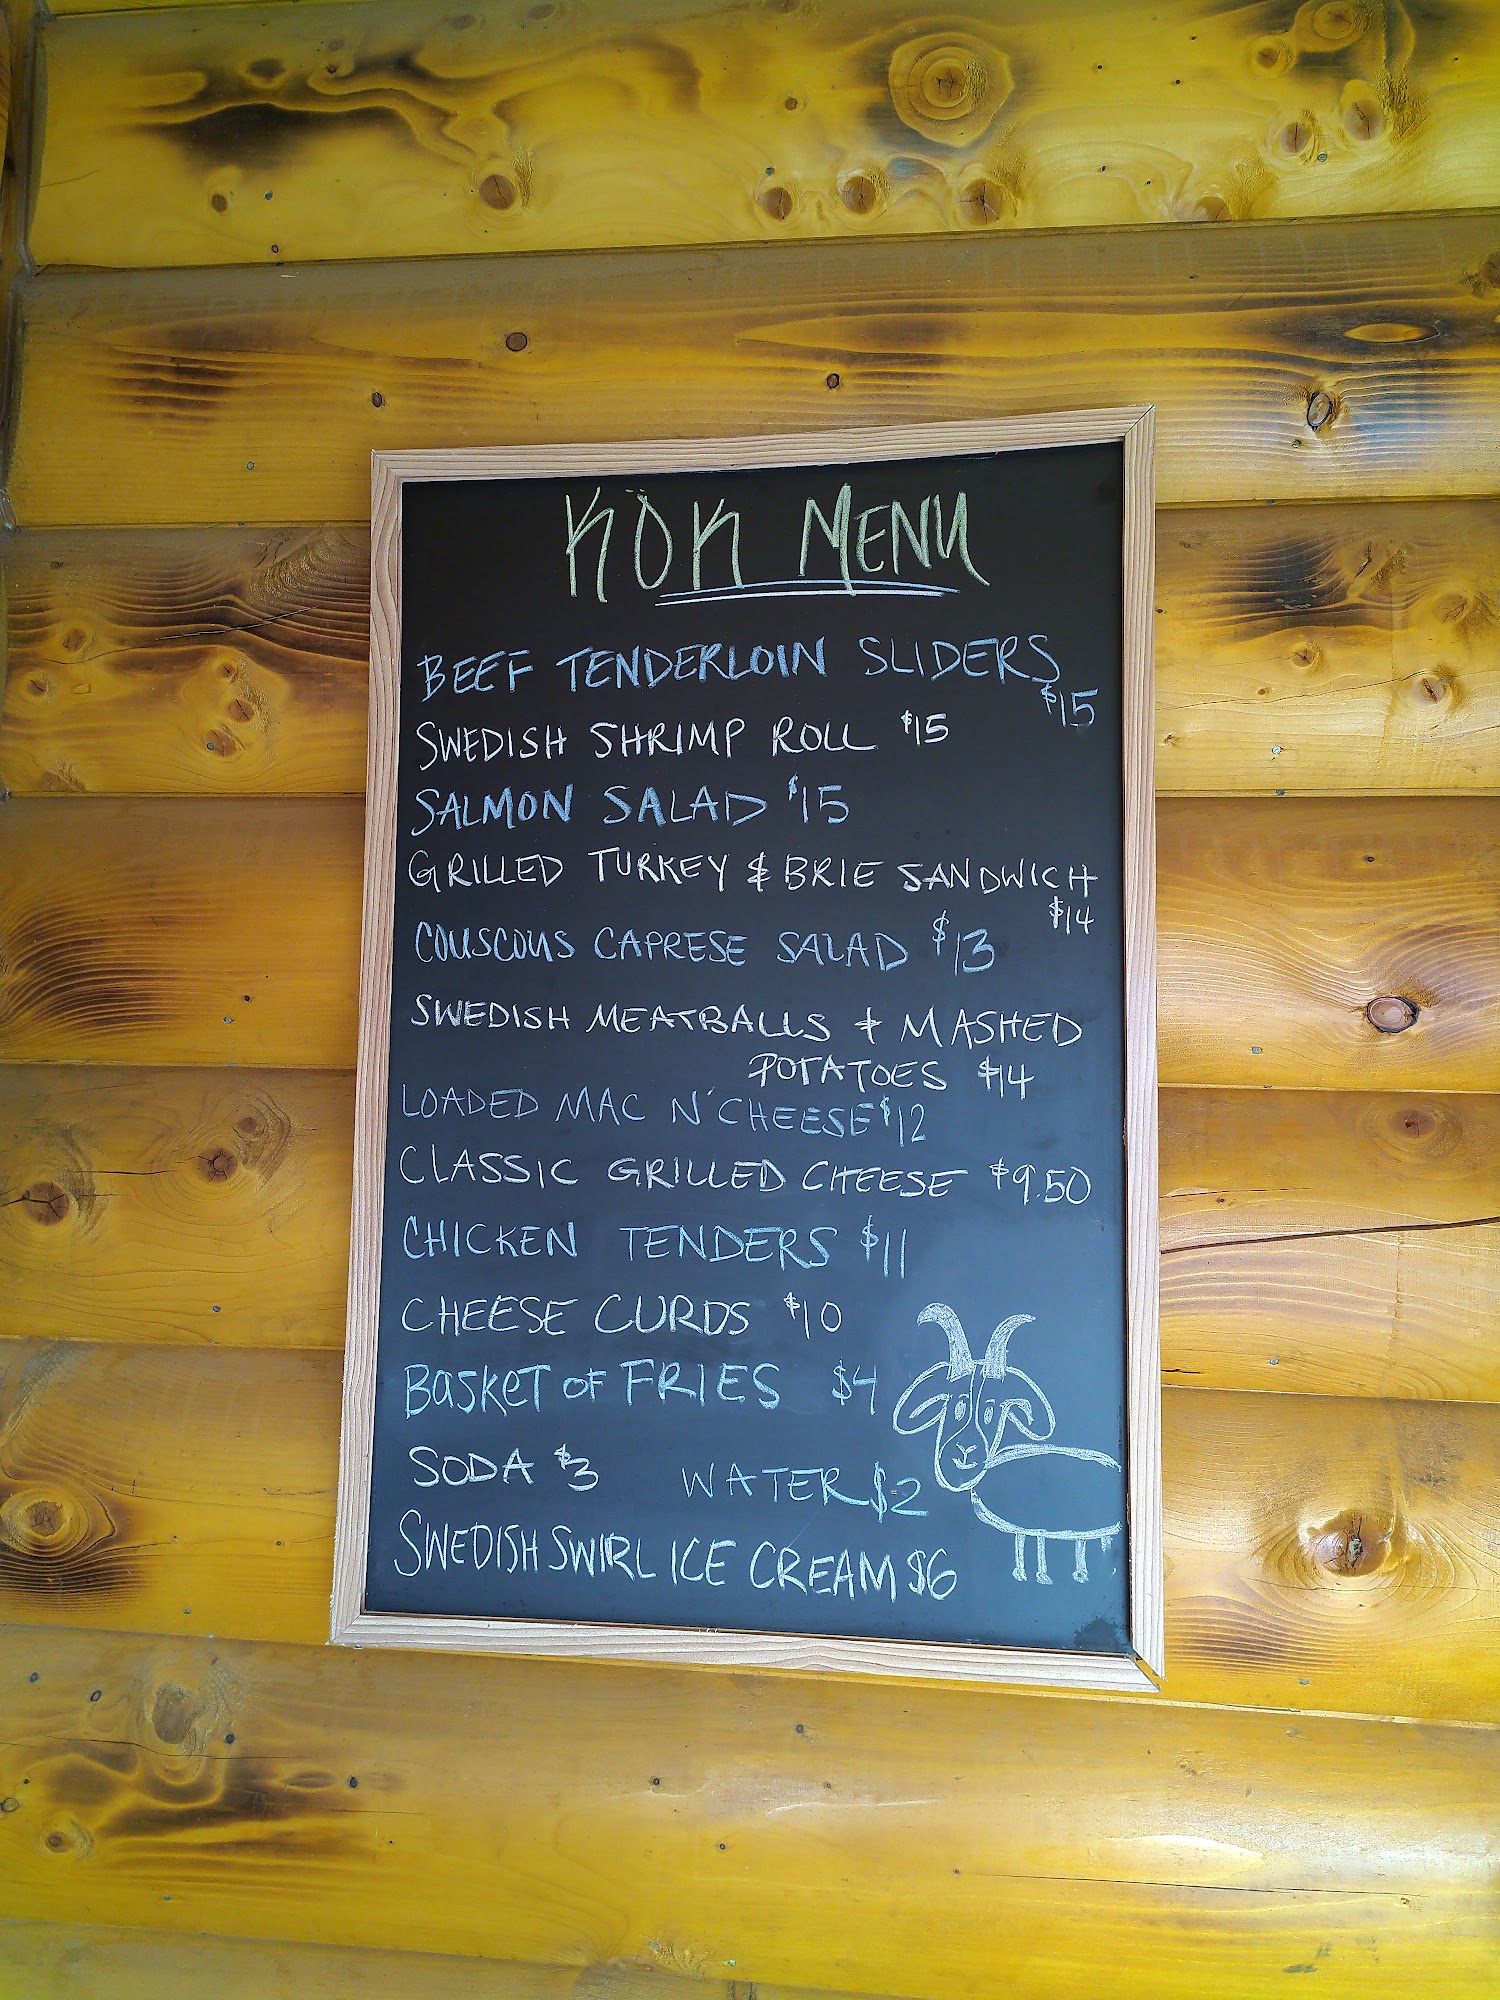 KÖK MENU
BEEF TENDERLOIN SLIDERS
$15
SWEDISH SHRIMP ROLL $15
SALMON SALAD $15
GRILLED TURKEY & BRIE SANDWICH
$14
COUSCOUS CAPRESE SALAD $13
SWEDISH MEATBALLS + MASHED
POTATOES $14
LOADED MAC N' CHEESE $12
CLASSIC GRILLED CHEESE $9.50
CHICKEN TENDERS $11
CHEESE CURDS $10
BASKET OF FRIES $4
SODA $3 WATER $2
SWEDISH SWIRL ICE CREAM $6